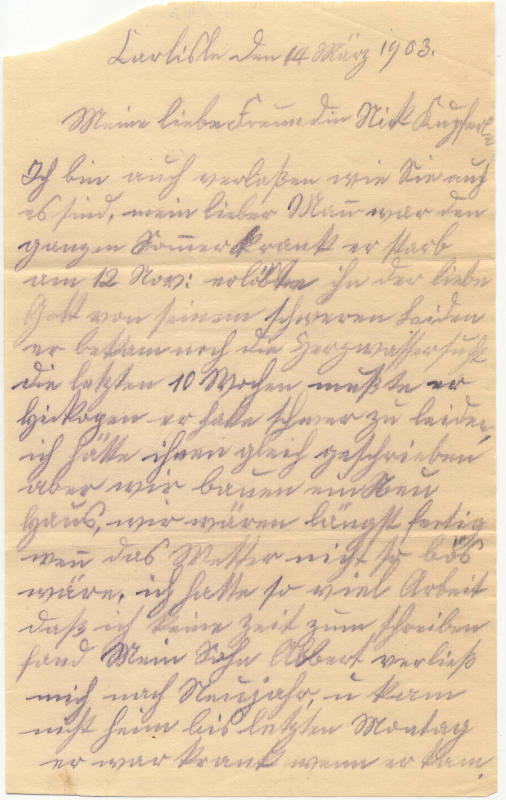 Carlisle den 14 März 1903.
Meine liebe Freundin Nick Kupferle
Ich bin auch verlaßen wie Sie auch
es sind, mein lieber Mañ war den
ganzen Som̄er krank er starb
am 12 Nov: erlößte ihn der liebe
Gott von seinem schweren Leiden
er bekam noch die Herzwassersucht
die letzten 10 Wochen mußte er
er hatte schwer zu leiden,
ich hätte ihnen gleich geschrieben
aber wir bauen ein Neu
Haus, wir wären längst fertig
weñ das Wetter nicht so bös
wäre, ich hatte so viel Arbeit
daß ich keine Zeit zum schreiben
fand Mein Sohn Albert verließ
mich nach Neujahr, u kam
nicht heim bis letzten Montag
er war krank wenn er kam.